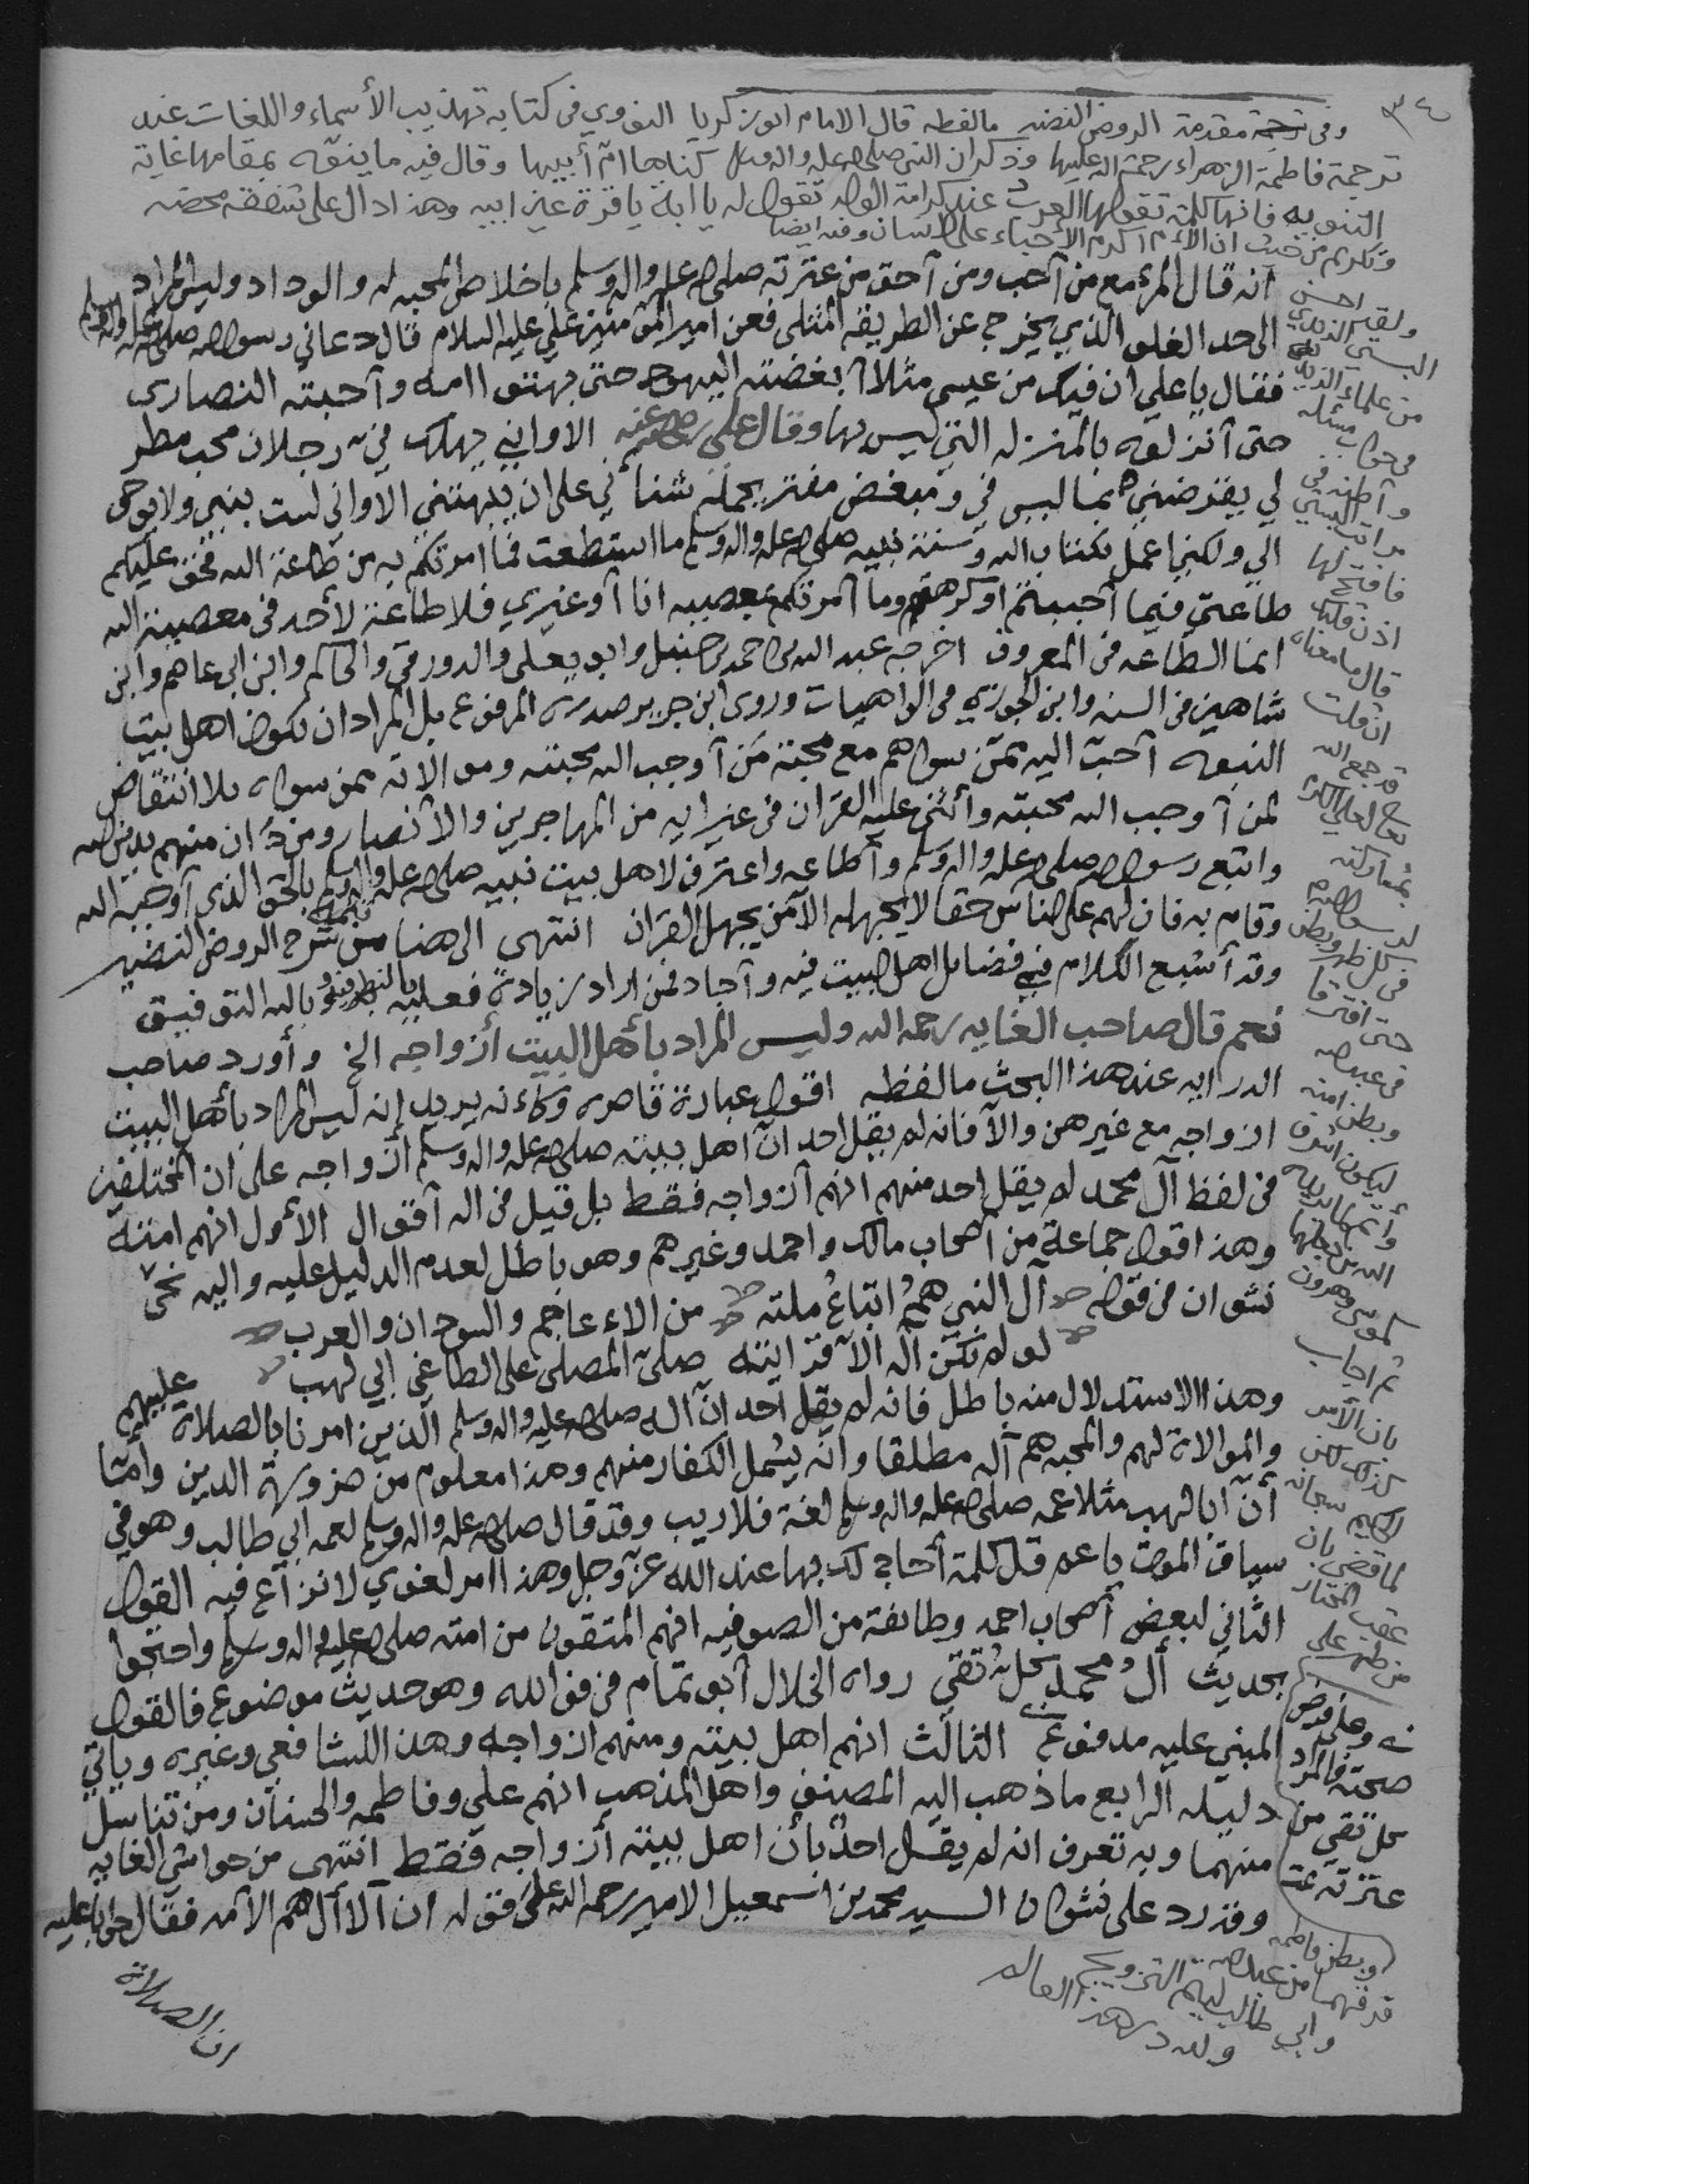 ٣٤٠
وفى ترجمة مقدمة الروض النضير مالفظه قال الامام ابو زكريا النووي في كتابه تهذيب الأسماء واللغات عند
ترجمة فاطمة الزهراء رحمة الله عليها وذكر ان النبي صلى الله عليه واله وسلم كناها ام أبيها وقال فيه ما ينوه بمقامها غاية
التنويه فانها كلمة تقولها العرب عند كرامة الولد تقول له يا ابه يا قرة عين ابيه وهذا دال على شفقة محضه
وتكريم من حيث ان الأم اكرم الأحباء على الانسان وفيه ايضا
أنه قال المرء مع من أحب ومن أحق من عترته صلى الله عليه واله وسلم باخلاص المحبه له والوداد وليس المراد
الى حد الغلو الذي يخرج عن الطريقه المثلى فعن امير المؤمنين علي عليه السلام قال دعاني رسول الله صلى الله عليه واله وسلم
فقال يا علي ان فيك من عيسى مثلا أبغضته اليهود حتى بهتوا امه وأحبته النصارى
حتى أنزلوه بالمنزله التي ليس بها وقال علي رضي الله عنه الا وانه يهلك فيّ رجلان محب مطر
لي يقرضني بما ليس في ومبغض مفتر يحمله شنأني على ان يبهتني الا واني لست بنبي ولا يوحى
الي ولكني اعمل بكتاب الله وسنة نبيه صلى الله عليه واله وسلم ما استطعت فما امرتكم به من طاعة الله فحق عليكم
طاعتي فيما أحببتم او كرهتم وما أمرتكم بمعصيه انا أو غيري فلا طاعة لأحد في معصية الله
انما الطاعه في المعروف اخرجه عبد الله بن احمد بن حنبل وابو يعلى والدورقي والحاكم وابن ابي عاصم وابن
شاهين في السنه وابن الجوزي في الواهيات وروى ابن جرير صدره المرفوع بل المراد ان يكون اهل بيت
النبوه أحب اليه ممن سواهم مع محبة من أوجب الله محبته وموالاته ممن سواه بلا انتقاص
لمن أوجب الله محبته وأثنى عليه القران في غير ايه من المهاجرين والأنصار ومن دان منهم بدين الله
واتبع رسول الله صلى الله عليه واله وسلم وأطاعه واعترف لاهل بيت نبيه صلى الله عليه واله وسلم بالحق الذي أوجبه الله
وقام به فان لهم على الناس حقا لا يجهله الا من يجهل القران انتهى الى هنا من تتمة شرح الروض النضير
وقد أشبع الكلام في فضائل اهل البيت فيه وأجاد فمن اراد زيادة فعليه بالنظر فيه وبالله التوفيق
نعم قال صاحب الغايه رحمه الله وليس المراد بأهل البيت أزواجه الخ وأورد صاحب
الدرايه عند هذا البحث مالفظه اقول عبارة قاصره وكأنه يريد إنه ليس المراد بأهل البيت
ازواجه مع غيرهن والا فانه لم يقل احد ان اهل بيته صلى الله عليه واله وسلم أزواجه على ان المختلفين
في لفظ آل محمد لم يقل احد منهم انهم أزواجه فقط بل قيل في اله أقوال الأول انهم امته
وهذا قول جماعة من أصحاب مالك واحمد وغيرهم وهو باطل لعدم الدليل عليه واليه نحى
نشوان في قوله آل النبي همُ اتباعُ ملته من الاءعاجم والسودان والعرب
لو لم تكن آله الا قرابته صلى المصلي على الطاغي إبي لهب
وهذا الاستدلال منه باطل فانه لم يقل أحد ان آله صلى الله عليه واله وسلم الذين امرنا بالصلاة عليهم
والموالاة لهم والمحبه هم آله مطلقا وانه يشمل الكفار منهم وهذا معلوم من ضرورة الدين وأما
أن أبا لهب مثلا عمه صلى الله عليه واله وسلم لغة فلا ريب وقد قال صلى الله عليه واله وسلم لعمه ابي طالب وهو في
سياق الموت يا عم قل كلمة أحاج لك بها عند الله عز وجل وهذا امر لغوي لا نزاع فيه القول
الثاني لبعض أصحاب احمد وطائفة من الصوفيه انهم المتقون من امته صلى الله عليه واله وسلم واحتجوا
بحديث ألُ محمد كلُّ تقي رواه الخلال أبو تمام في فوائده وهو حديث موضوع فالقول
المبني عليه مدفوع الثالث انهم اهل بيته ومنهم ازواجه وهذا للشافعي وغيره وياتي
دليله الرابع ما ذهب اليه المصنف واهل المذهب انهم علي وفاطمه والحسنان ومن تناسل
منهما وبه تعرف انه لم يقل احد بأن اهل بيته أزواجه فقط انتهى من حواشي الغايه
وقد رد على نشوان السيد محمد بن اسمعيل الامير رحمه الله على قوله ان الاآل هم الامه فقال جوابا عليه
ان الصلاة
ولقد احسن
البستي الزيدي
من علماء الزيديه
في جواب مسئله
وأظنه في
مراتب البستي
فافتح لها
اذن قلبك
قال ما معناه
ان قلت
قد جمع الله
تعالى لعلي
بمشاركته
لرسول الله
في كل ظهر وبطن
حتى افترقا
في عبد الله
وبطن امنه
ليكون اشرف
كموسى وهرون
ثم اجاب
بان الأمر
كذلك لكن
الحكيم سبحانه
لما قضى بان
عقب المختار
من ظهر علي
وبطن فاطمه
فرقهما من عبد الله
وابي طالب ليتم التزويج
ولله در هذا العالم
وعلى فرض
صحته فالمراد
كل تقي من
عترته